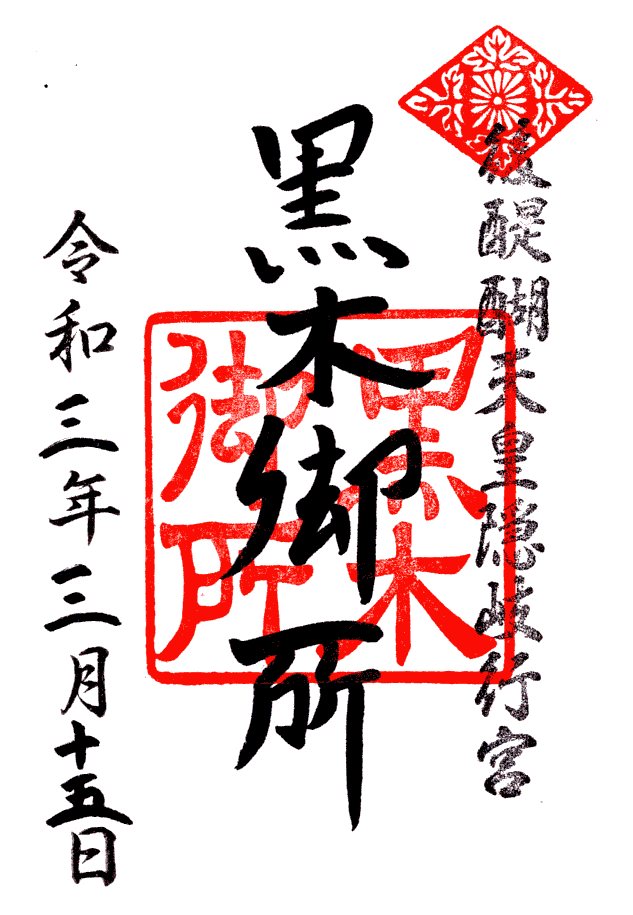 後醍醐天皇隠岐行宮
黒木御所
黒木
御所
令和三年三月十五日